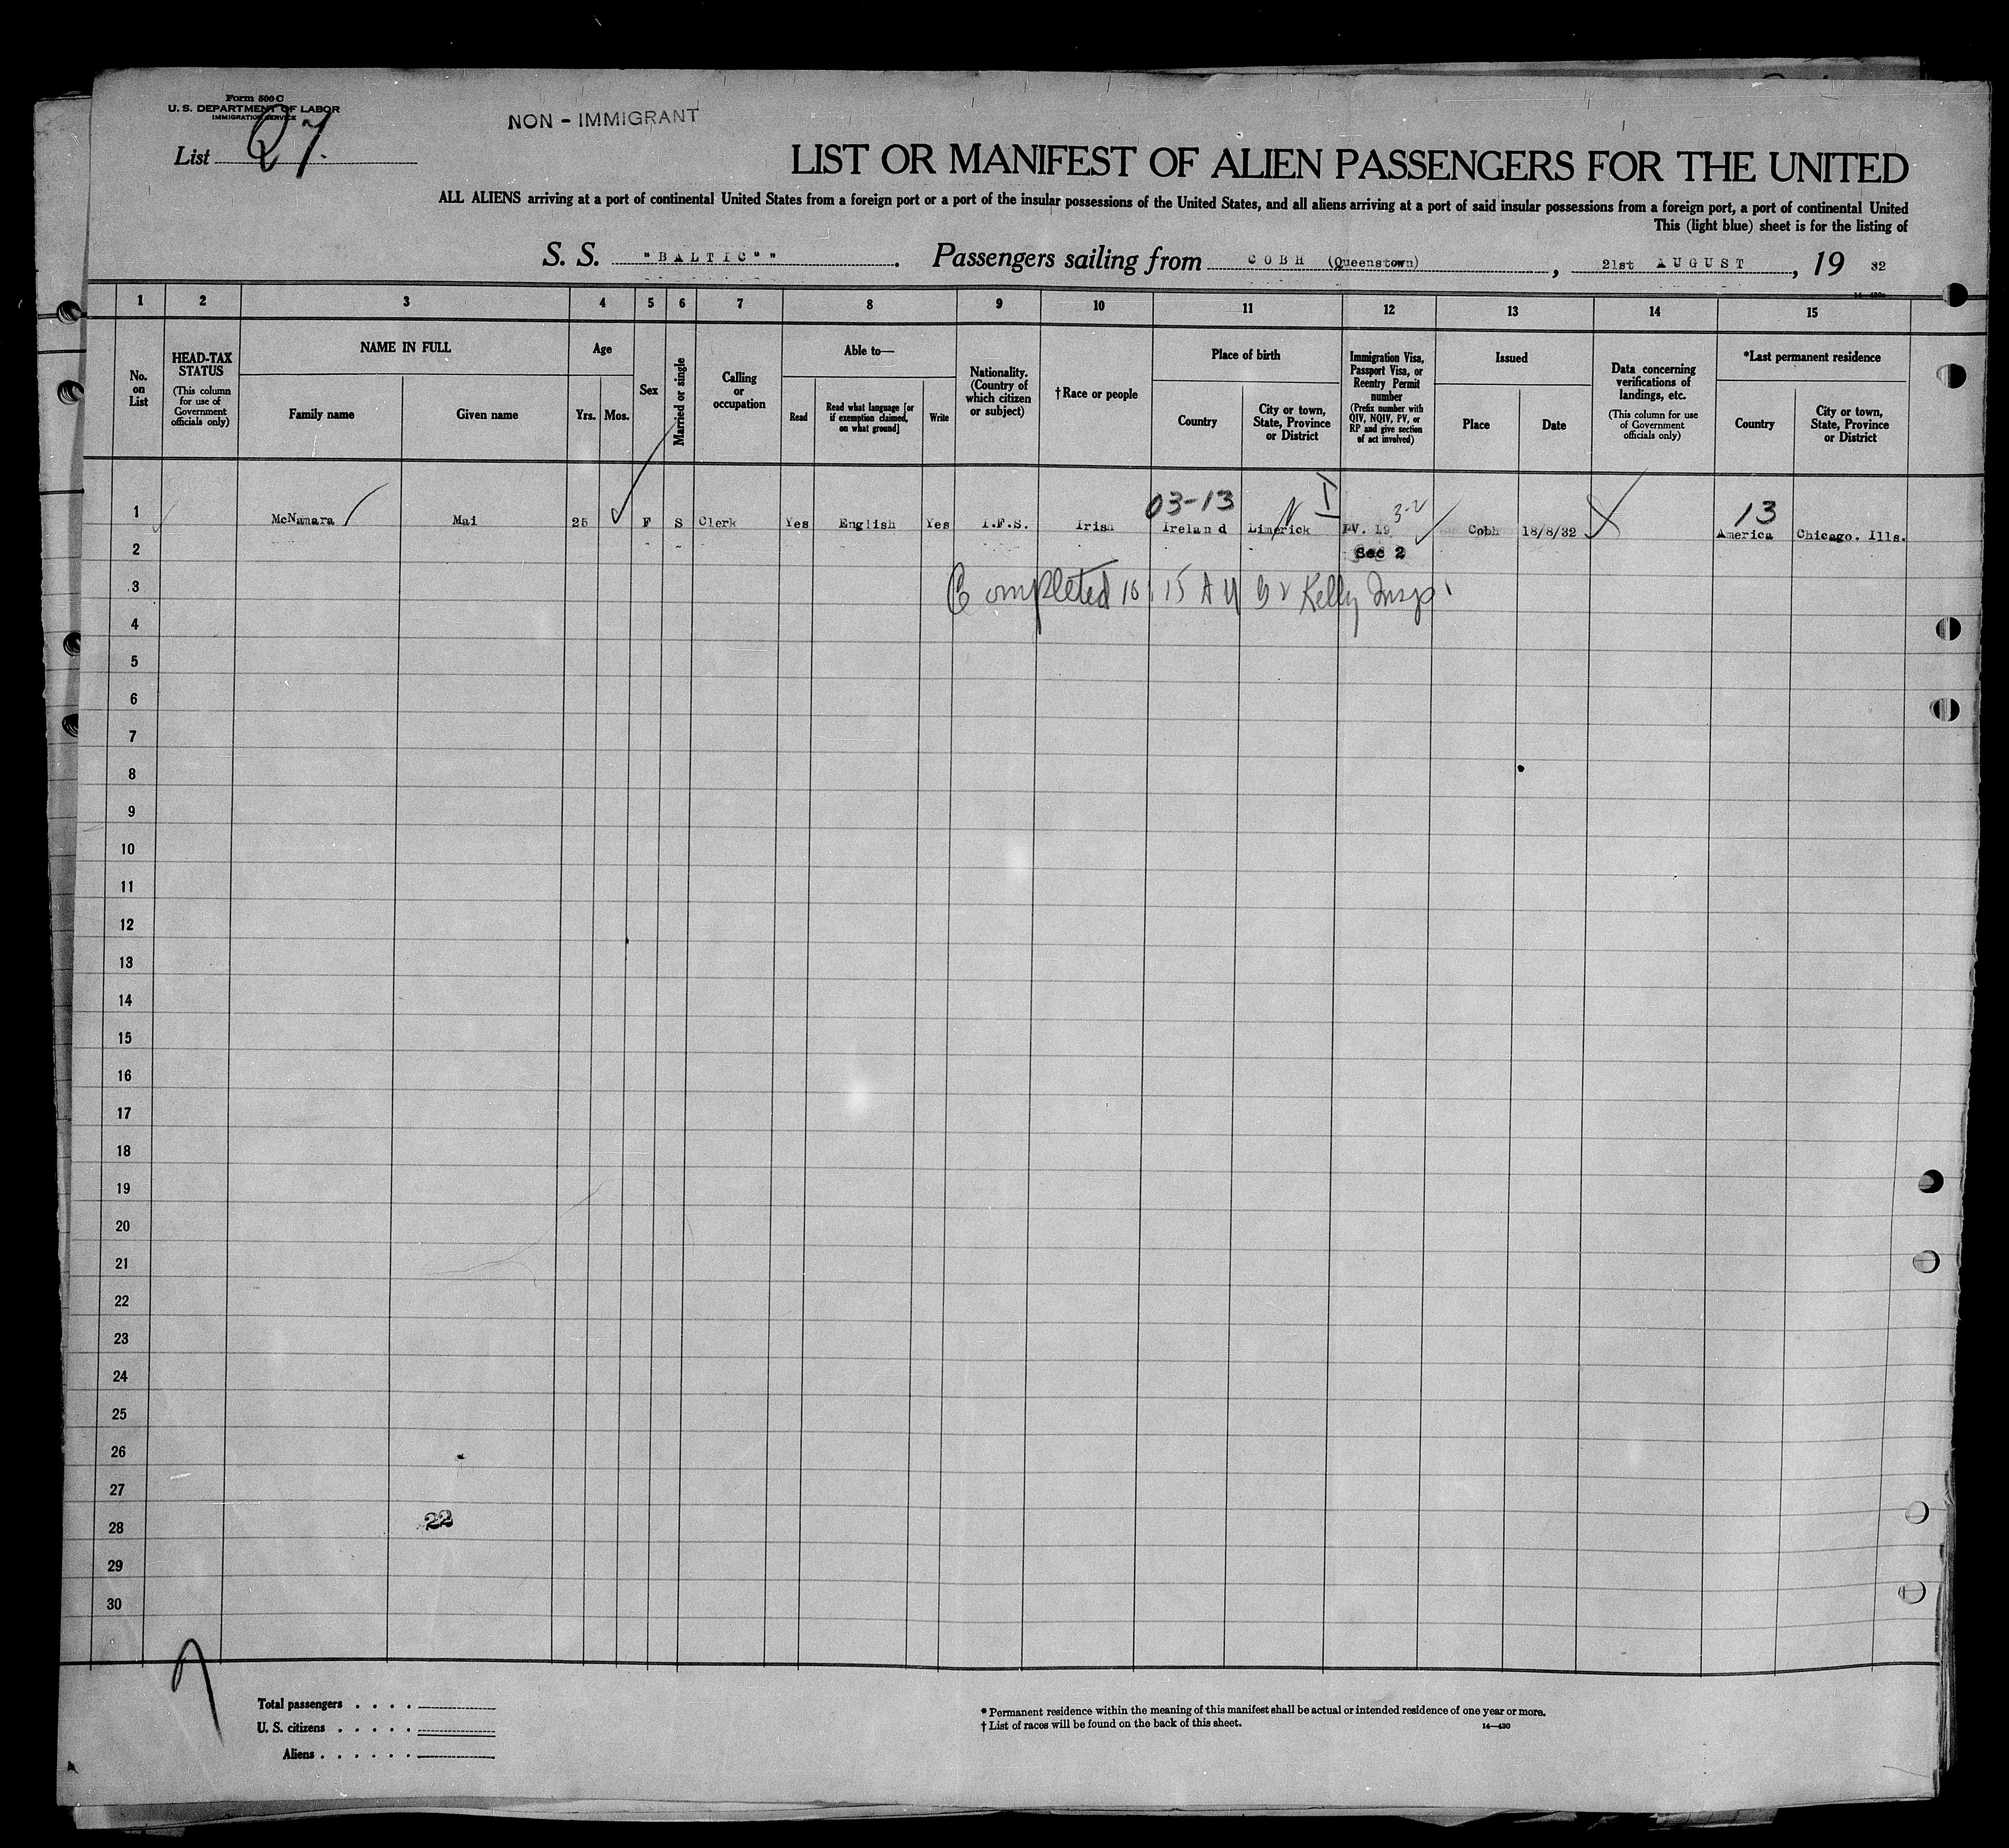 Form 500 C
U. S. DEPARTMENT OF LABOR
IMMIGRATION SERVICE
NON - IMMIGRANT
List 27.
LIST OR MANIFEST OF ALIEN PASSENGERS FOR THE UNITED
ALL ALIENS arriving at a port of continental United States from a foreign port or a port of the insular possessions of the United States, and all aliens arriving at a port of said insular possessions from a foreign port, a port of continental United
This (light blue) sheet is for the listing of
S. S. "BALTIC"" . Passengers sailing from COBH (Queenstown) , 21st AUGUST , 19 32
1 2 3 4 5 6 7 8 9 10 11 12 13 14 15
No. on List
HEAD-TAX STATUS (This column for use of Government officials only)
NAME IN FULL
Family name
Given name
Age
Yrs. Mos.
Sex
Married or single
Calling or occupation
Able to—
Read
Read what language [or if exemption claimed, on what ground]
Write
Nationality. (Country of which citizen or subject)
† Race or people
Place of birth
Country
City or town, State, Province or District
Immigration Visa, Passport Visa, or Reentry Permit number (Prefix number with QIV, NQIV, PV, or RP and give section of act involved)
Issued
Place
Date
Data concerning verifications of landings, etc. (This column for use of Government officials only)
*Last permanent residence
Country
City or town, State, Province or District
03-13 I 3-2 13
1 McNamara Mai 25 F S Clerk Yes English Yes I.F.S. Irish Ireland Limerick PV. 19 Cobh 18/8/32 America Chicago. Ills.
2 Sec 2
3 Completed 10 15 A Kelly Insp.
4
5
6
7
8
9
10
11
12
13
14
15
16
17
18
19
20
21
22
23
24
25
26
27
28 22
29
30
Total passengers . . . .
U. S. citizens . . . . .
Aliens . . . . . .
* Permanent residence within the meaning of this manifest shall be actual or intended residence of one year or more.
† List of races will be found on the back of this sheet.
14—430